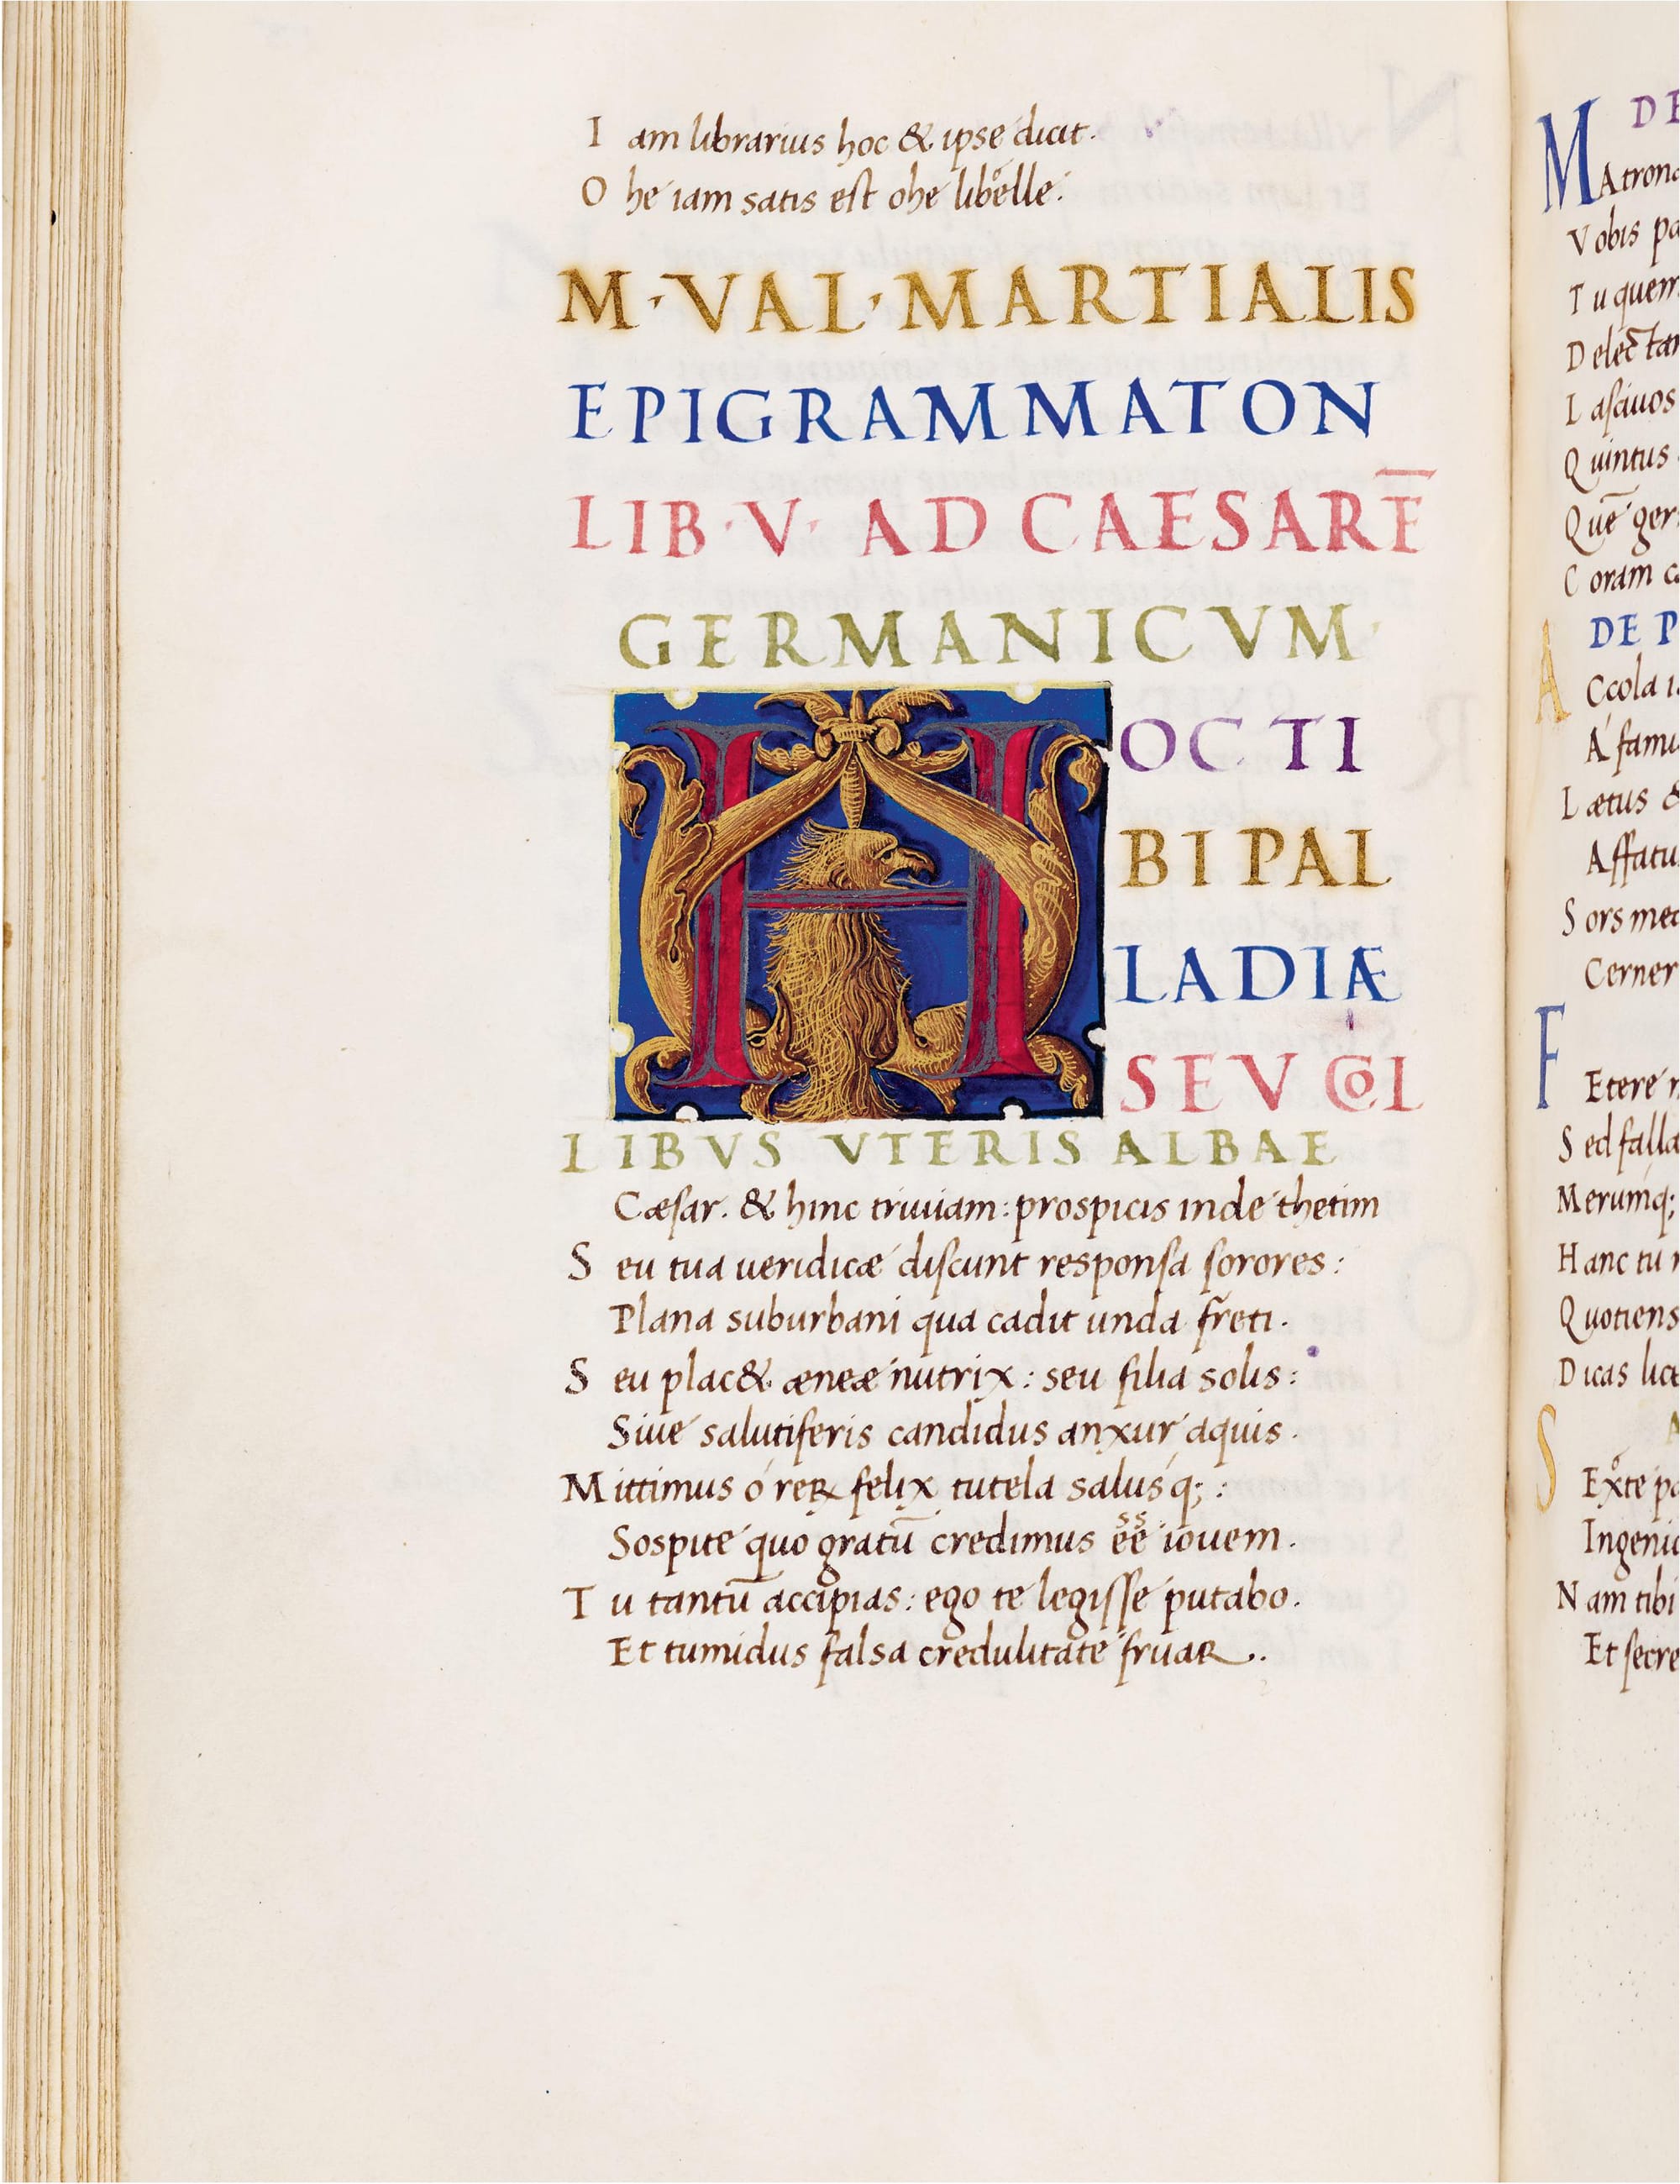 I am librarius hoc & ipse dicit.
O he iam satis est ohe libelle.
M · VAL · MARTIALIS
EPIGRAMMATON
LIB · V · AD CAESARĒ
GERMANICVM ·
H OC TI
BI PAL
LADIÆ
SEV COL
LIBVS VTERIS ALBAE
Cæsar. & hinc triuiam: prospicis inde thetim
S eu tua ueridicæ discunt responsa sorores:
Plana suburbani qua cadit unda freti.
S eu plac& æneæ nutrix: seu filia solis:
Siue salutiferis candidus anxur aquis.
M ittimus ó reꝝ felix tutela salusq;:
Sospite quo gratū credimus ēē iouem.
T u tantū accipias: ego te legisse putabo.
Et tumidus falsa credulitate fruar.
DE
M Atrona
V obis pa
T u quem
D electar
L asciuos
Q uintus
Q uē ger
C oram ca
DE P
A Ccola i
A famu
L ætus &
Affatu
S ors mea
Cerner
F Etere n
S ed falla
Merumq;
H anc tu n
Q uotiens
D icas lice
A
S Exte pa
Ingenio
N am tibi
Et secre